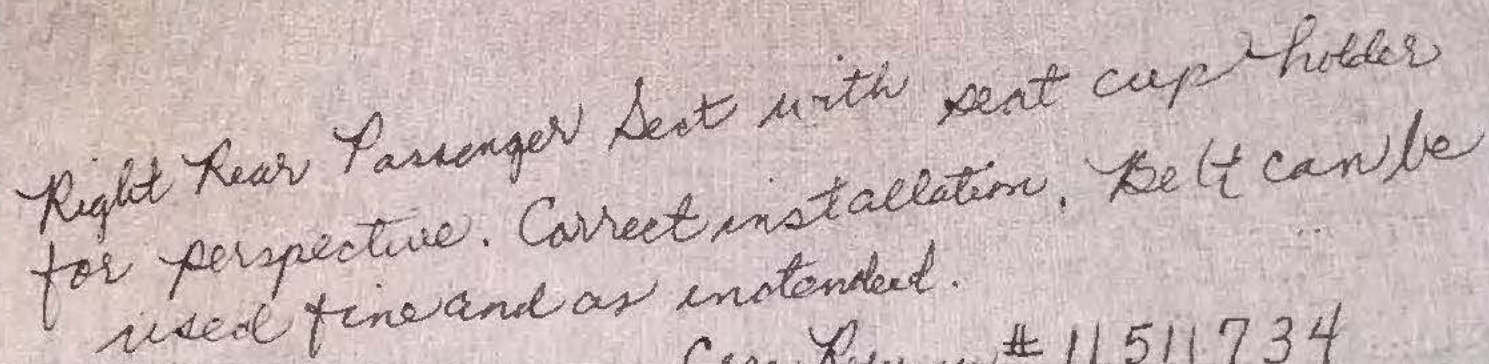 Right Rear Passenger Seat with seat cup holder
for perspective. Correct installation. Belt can be
used fine and as inotended.
# 11511734